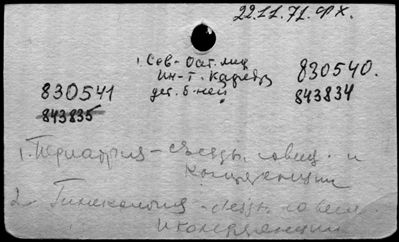 22.11.71. Ф Х.
1. Сев-Ост. мед
Ин-т. Кафедра
дет. б-ней
830540.
843834
830541
843835
1. Педиатрия - съезды, совещ. и
конференции
2. Гинекология - съезды, совещ.
и конференции